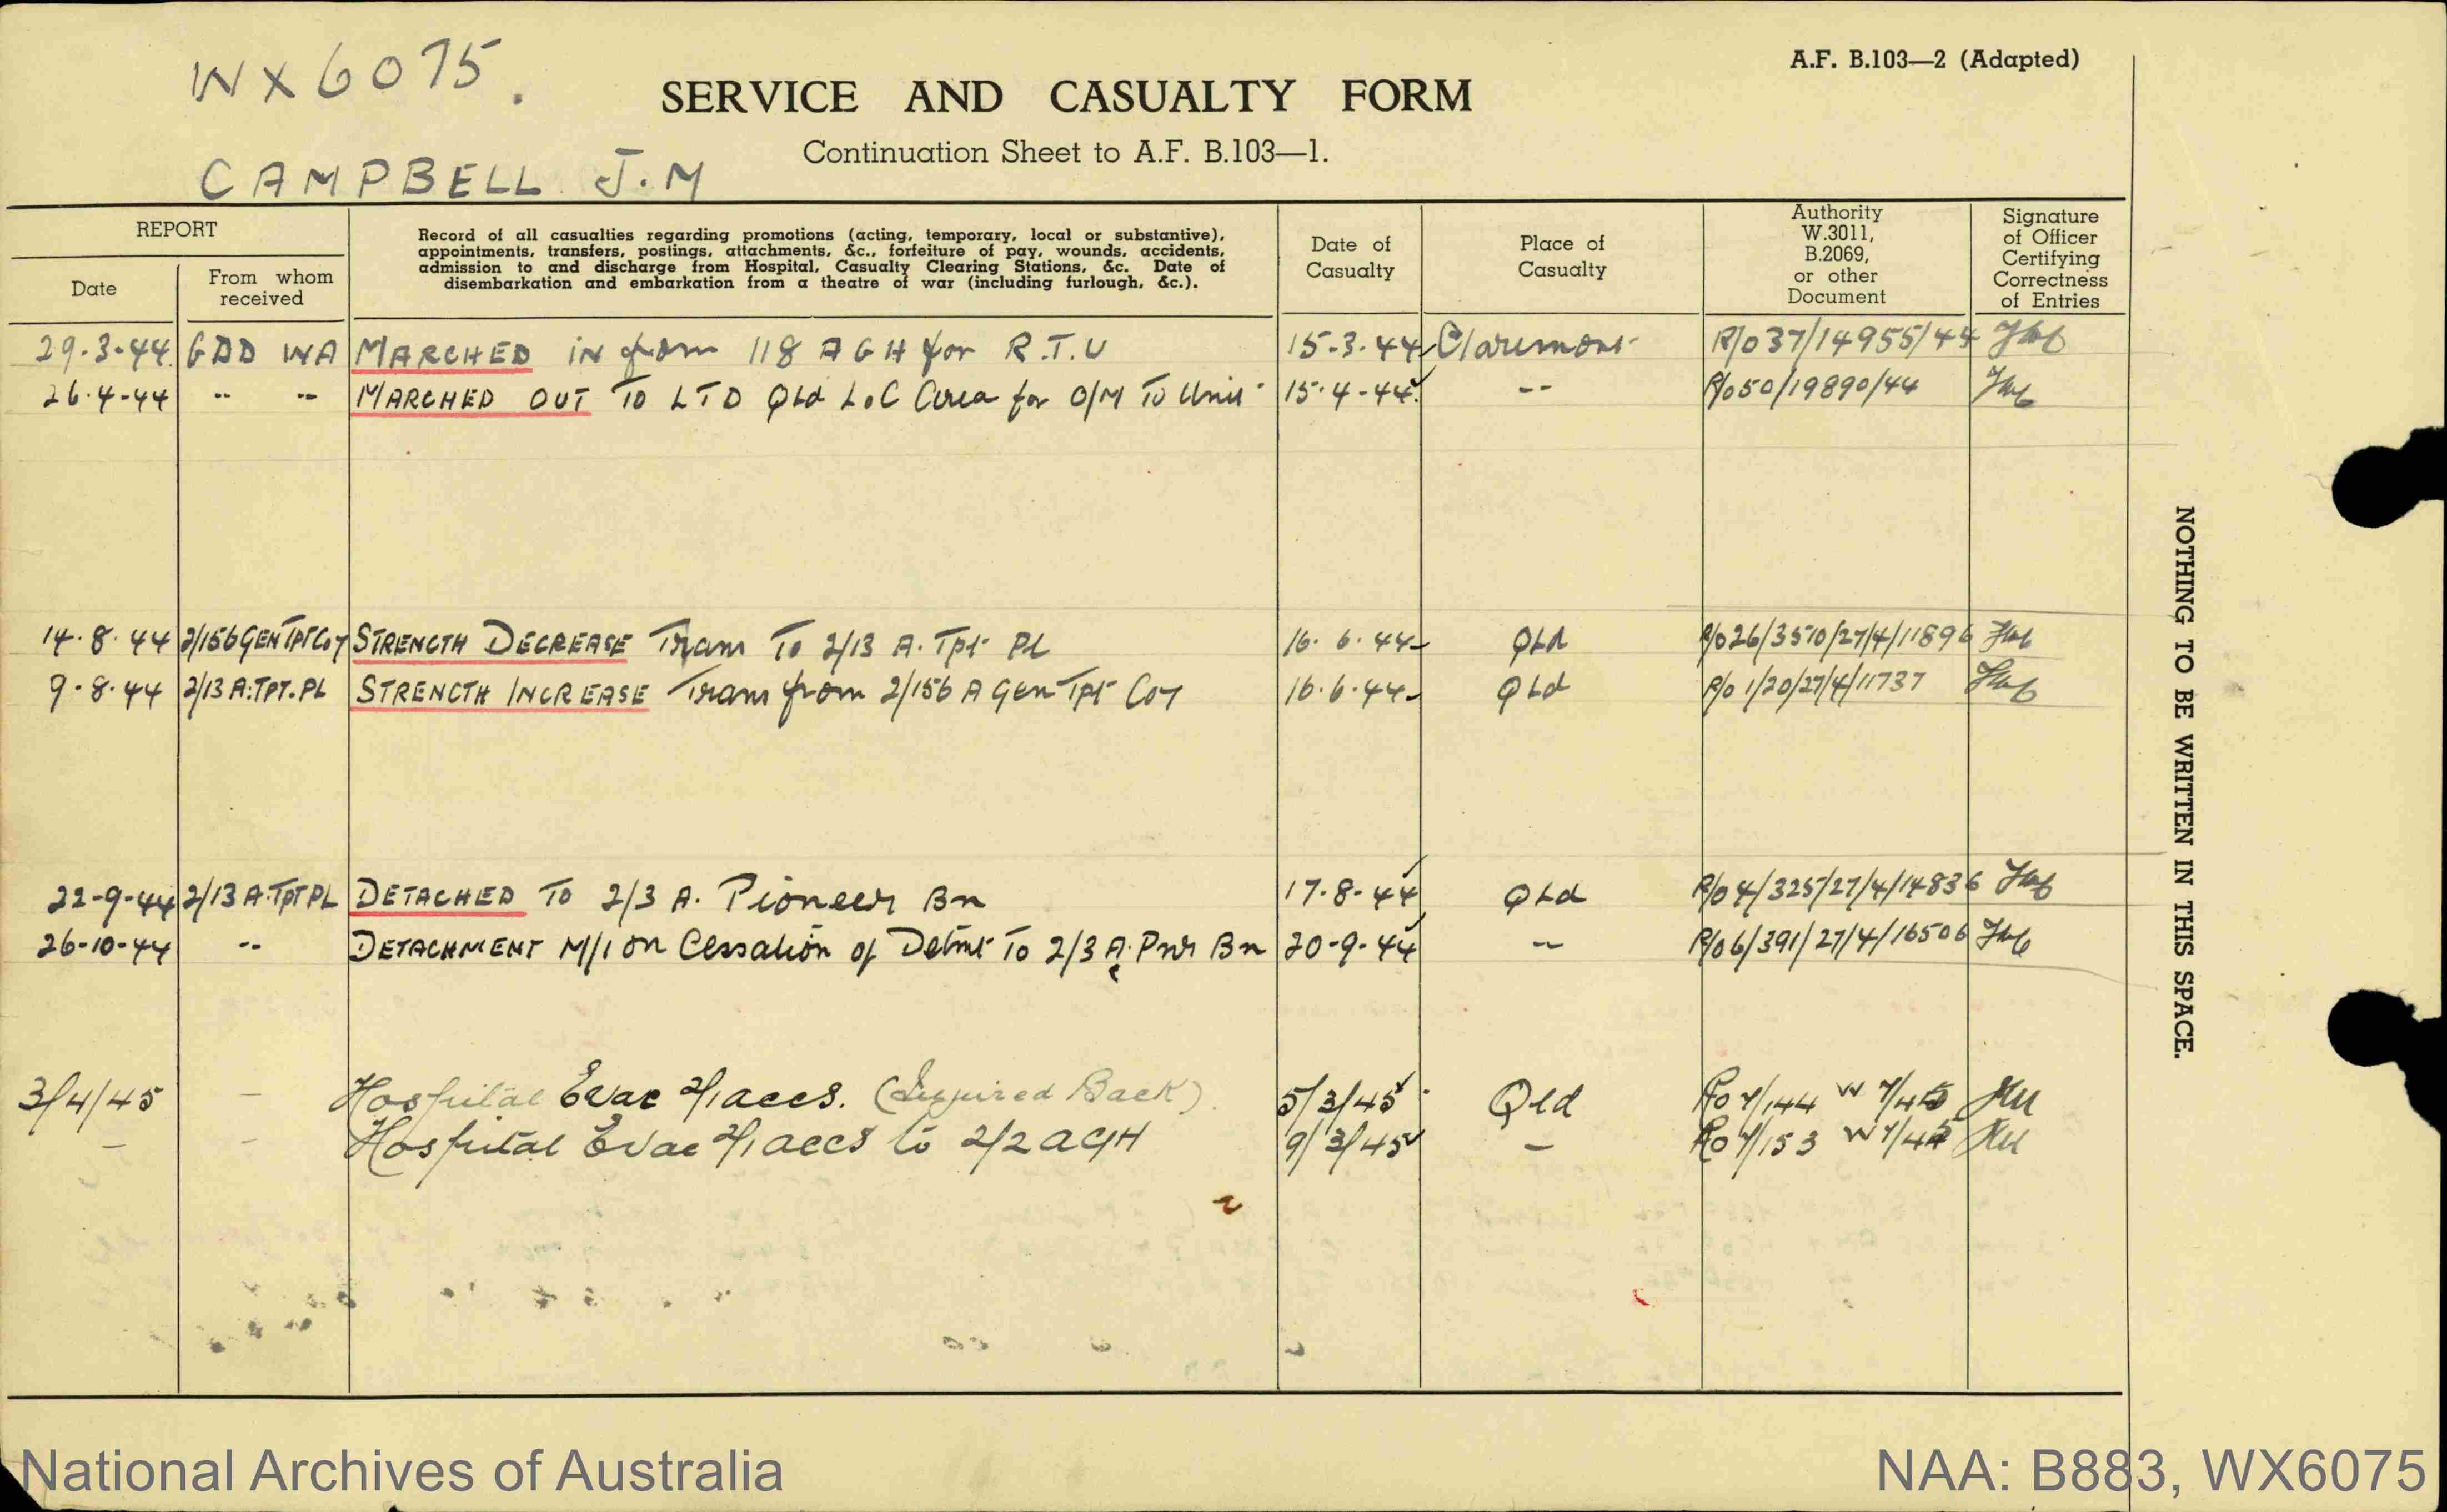 WX6075.
CAMPBELL J.M
A.F. B.103—2 (Adapted)
SERVICE AND CASUALTY FORM
Continuation Sheet to A.F. B.103—1.
REPORT
Date
From whom
received
Record of all casualties regarding promotions (acting, temporary, local or substantive),
appointments, transfers, postings, attachments, &c., forfeiture of pay, wounds, accidents,
admission to and discharge from Hospital, Casualty Clearing Stations, &c. Date of
disembarkation and embarkation from a theatre of war (including furlough, &c.).
Date of
Casualty
Place of
Casualty
Authority
W.3011,
B.2069,
or other
Document
Signature
of Officer
Certifying
Correctness
of Entries
29.3.44 GDD WA MARCHED IN from 118 AGH for R.T.U 15.3.44 Claremont R/O 37/14955/44
26.4.44 -- -- MARCHED OUT TO LTD QLd L.oC Area for O/M To Unit 15.4.44 -- R/O 50/19890/44
14.8.44 2/156 GEN TPT Coy STRENGTH DECREASE Trans To 2/13 A. Tpt PL 16.6.44 QLd R/O 26/3510/27/4/11896
9.8.44 2/13 A.TPT.PL STRENGTH INCREASE Trans from 2/156 A Gen Tpt Coy 16.6.44 QLd R/O 1/20/27/4/11737
22-9-44 2/13 A.TPT PL DETACHED TO 2/3 A. Pioneer Bn 17.8.44 QLd R/O 4/325/27/4/14836
26-10-44 -- DETACHMENT M/I on Cessation of Detmt To 2/3 A. Pnr Bn 20-9-44 -- R/O 6/391/27/4/16506
3/4/45 - Hospital Evac 2/1 accs. (Injured Back) 5/3/45 Qld
- - Hospital Evac 2/1 accs to 2/2 AGH 9/3/45 -
NOTHING TO BE WRITTEN IN THIS SPACE.
National Archives of Australia
NAA: B883, WX6075